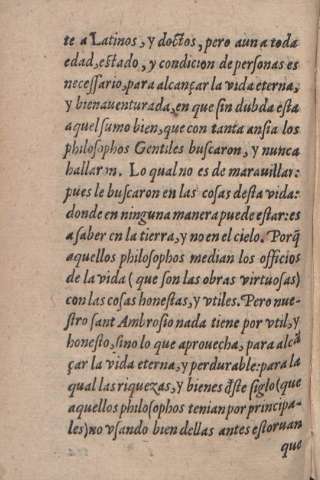 te a Latinos, y doctos, pero aun a toda
edad, estado, y condicion de personas es
necessario, para alcançar la vida eterna,
y bienauenturada, en que sin dubda esta
aquel sumo bien, que con tanta ansia los
philosophos Gentiles buscaron, y nunca
hallaron. Lo qual no es de marauillar:
pues le buscaron en las cosas desta vida:
donde en ninguna manera puede estar: es
a saber en la tierra, y no en el cielo. Porq̃
aquellos philosophos median los officios
de la vida (que son las obras virtuosas)
con las cosas honestas, y vtiles. Pero nue-
stro sant Ambrosio nada tiene por vtil, y
honesto, sino lo que aprouecha, para alcã
çar la vida eterna, y perdurable: para la
qual las riquezas, y bienes d̃ste siglo (que
aquellos philosophos tenian por principa-
les) no vsando bien dellas antes estoruan
que